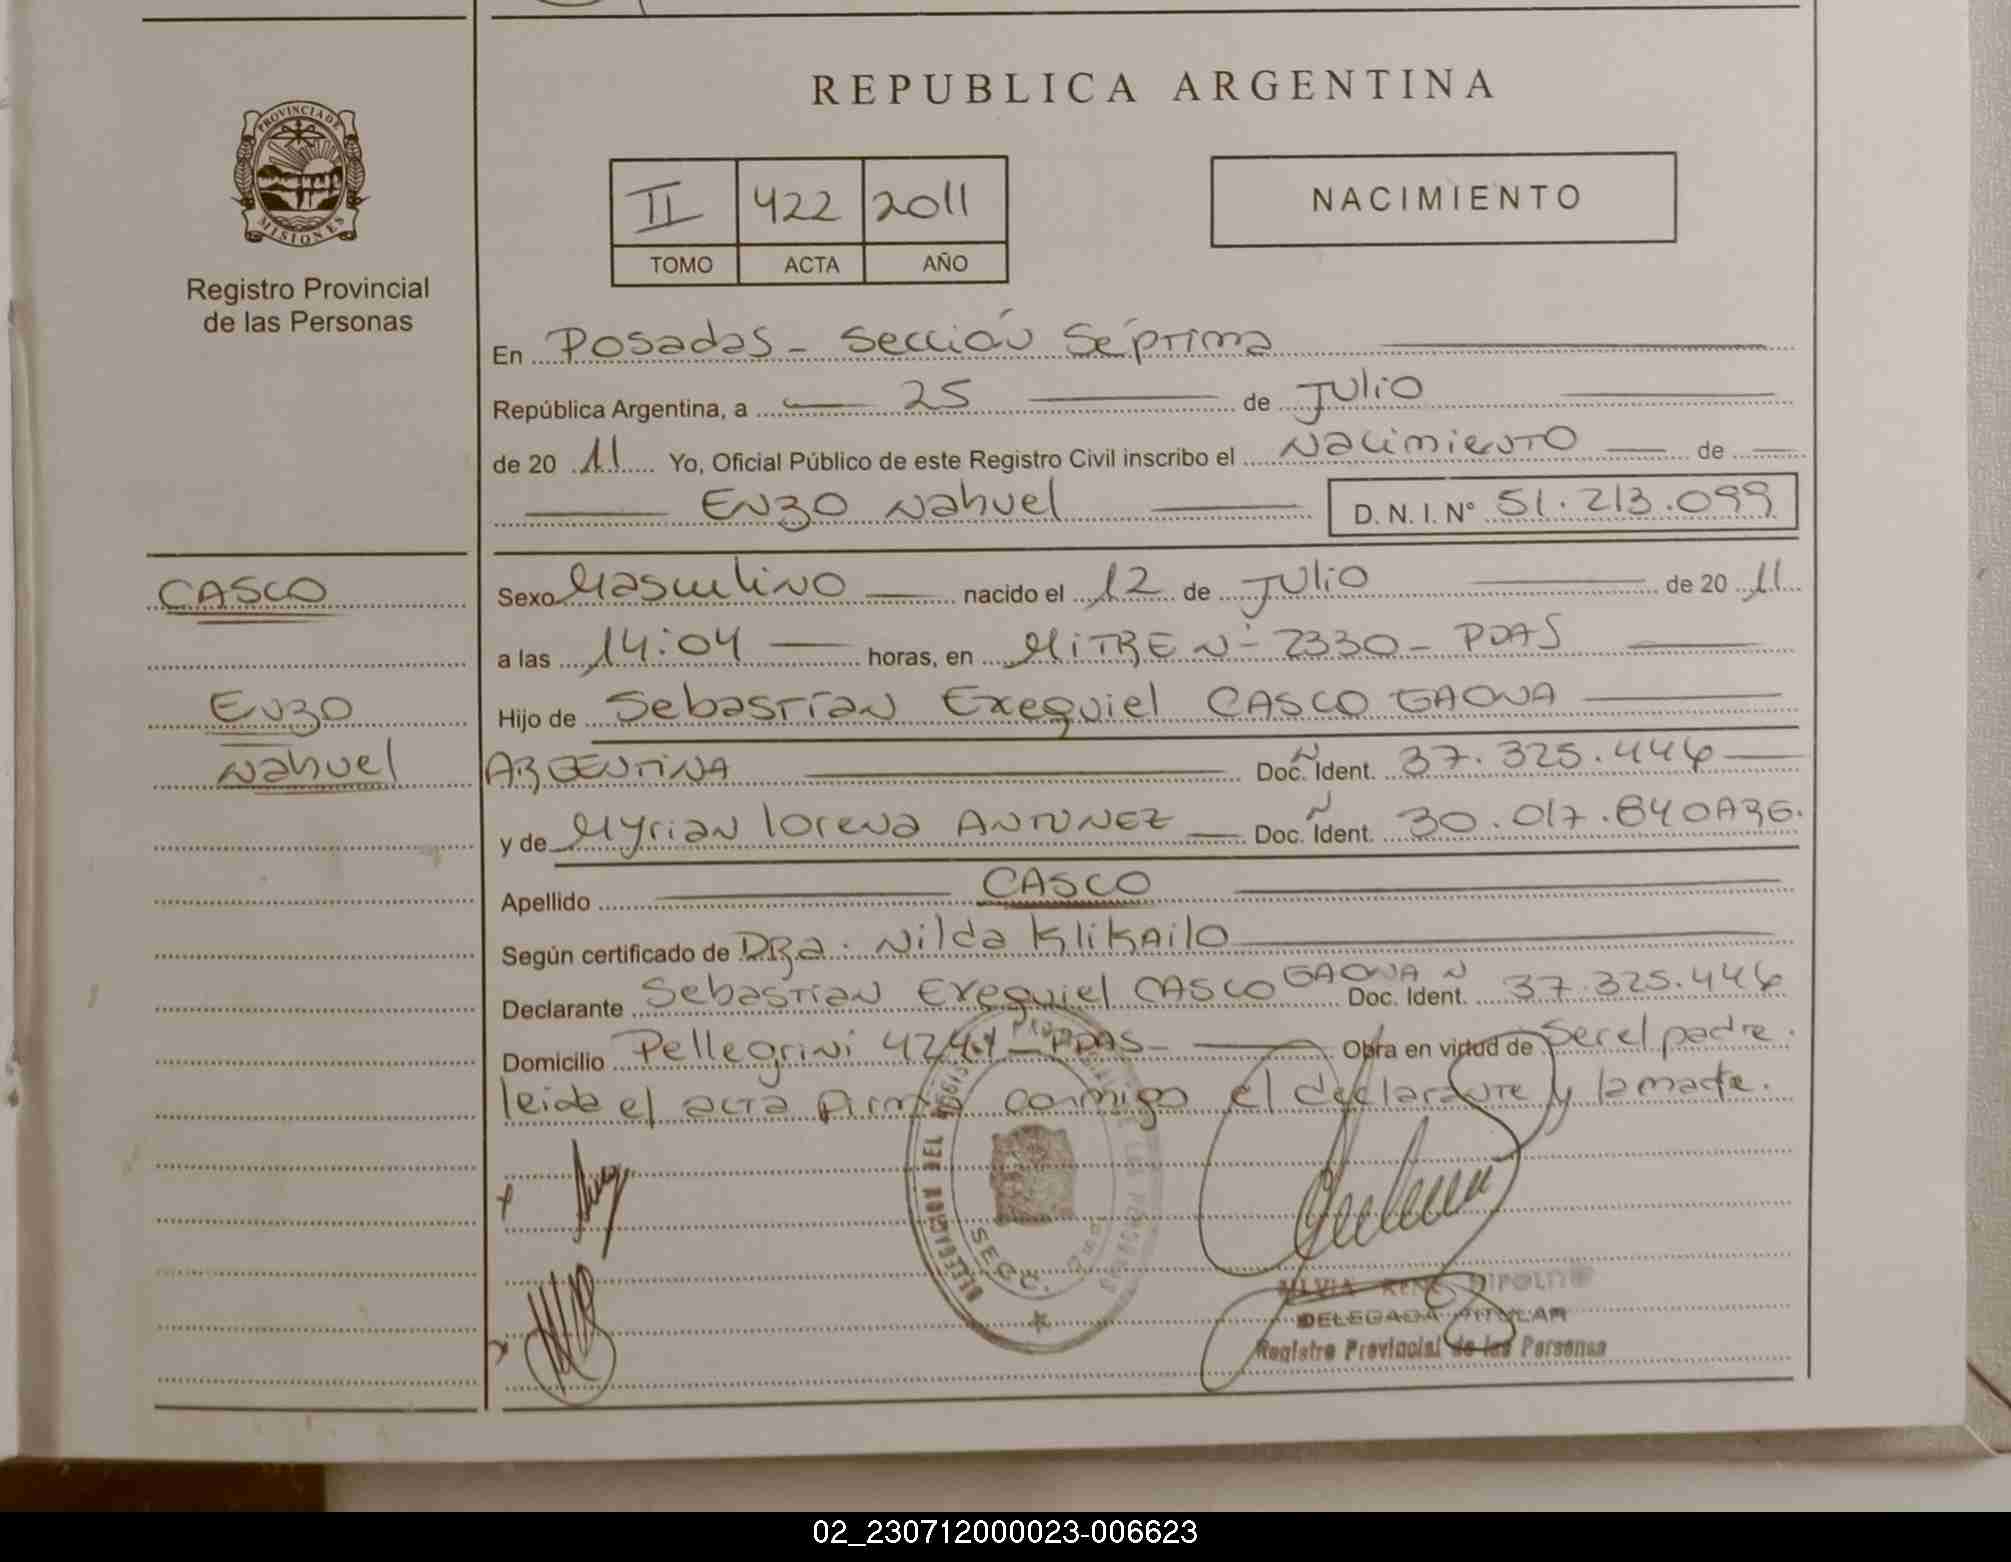 REPUBLICA ARGENTINA
PROVINCIA DE
MISIONES
Registro Provincial
de las Personas
II 422 2011
TOMO ACTA AÑO
NACIMIENTO
En Posadas - Sección Séptima
República Argentina, a 25 de Julio
de 20 11 Yo, Oficial Público de este Registro Civil inscribo el Nacimiento de
Enzo Nahuel D. N. I. Nº 51.213.099
CASCO
Enzo
Nahuel
Sexo Masculino nacido el 12 de Julio de 20 11
a las 14:04 horas, en MITRE Nº 2330 - PDAS
Hijo de Sebastían Exequiel CASCO GAONA
ARGENTINA Doc. Ident. N 37.325.446
y de Myrian lorena ANTUNEZ Doc. Ident. N 30.017.840 ARG.
Apellido CASCO
Según certificado de DRa. Nilda KliKAilo
Declarante Sebastian Exequiel CASCO GAONA Doc. Ident. N 37.325.446
Domicilio Pellegrini 4244 - PDAS - Obra en virtud de Ser el padre.
leida el acta firma conmigo el declarante y la madre.
DELEGACION DEL
SECC.
SILVIA RENE HIPOLITO
DELEGADA TITULAR
Registro Provincial de las Personas
02_230712000023-006623